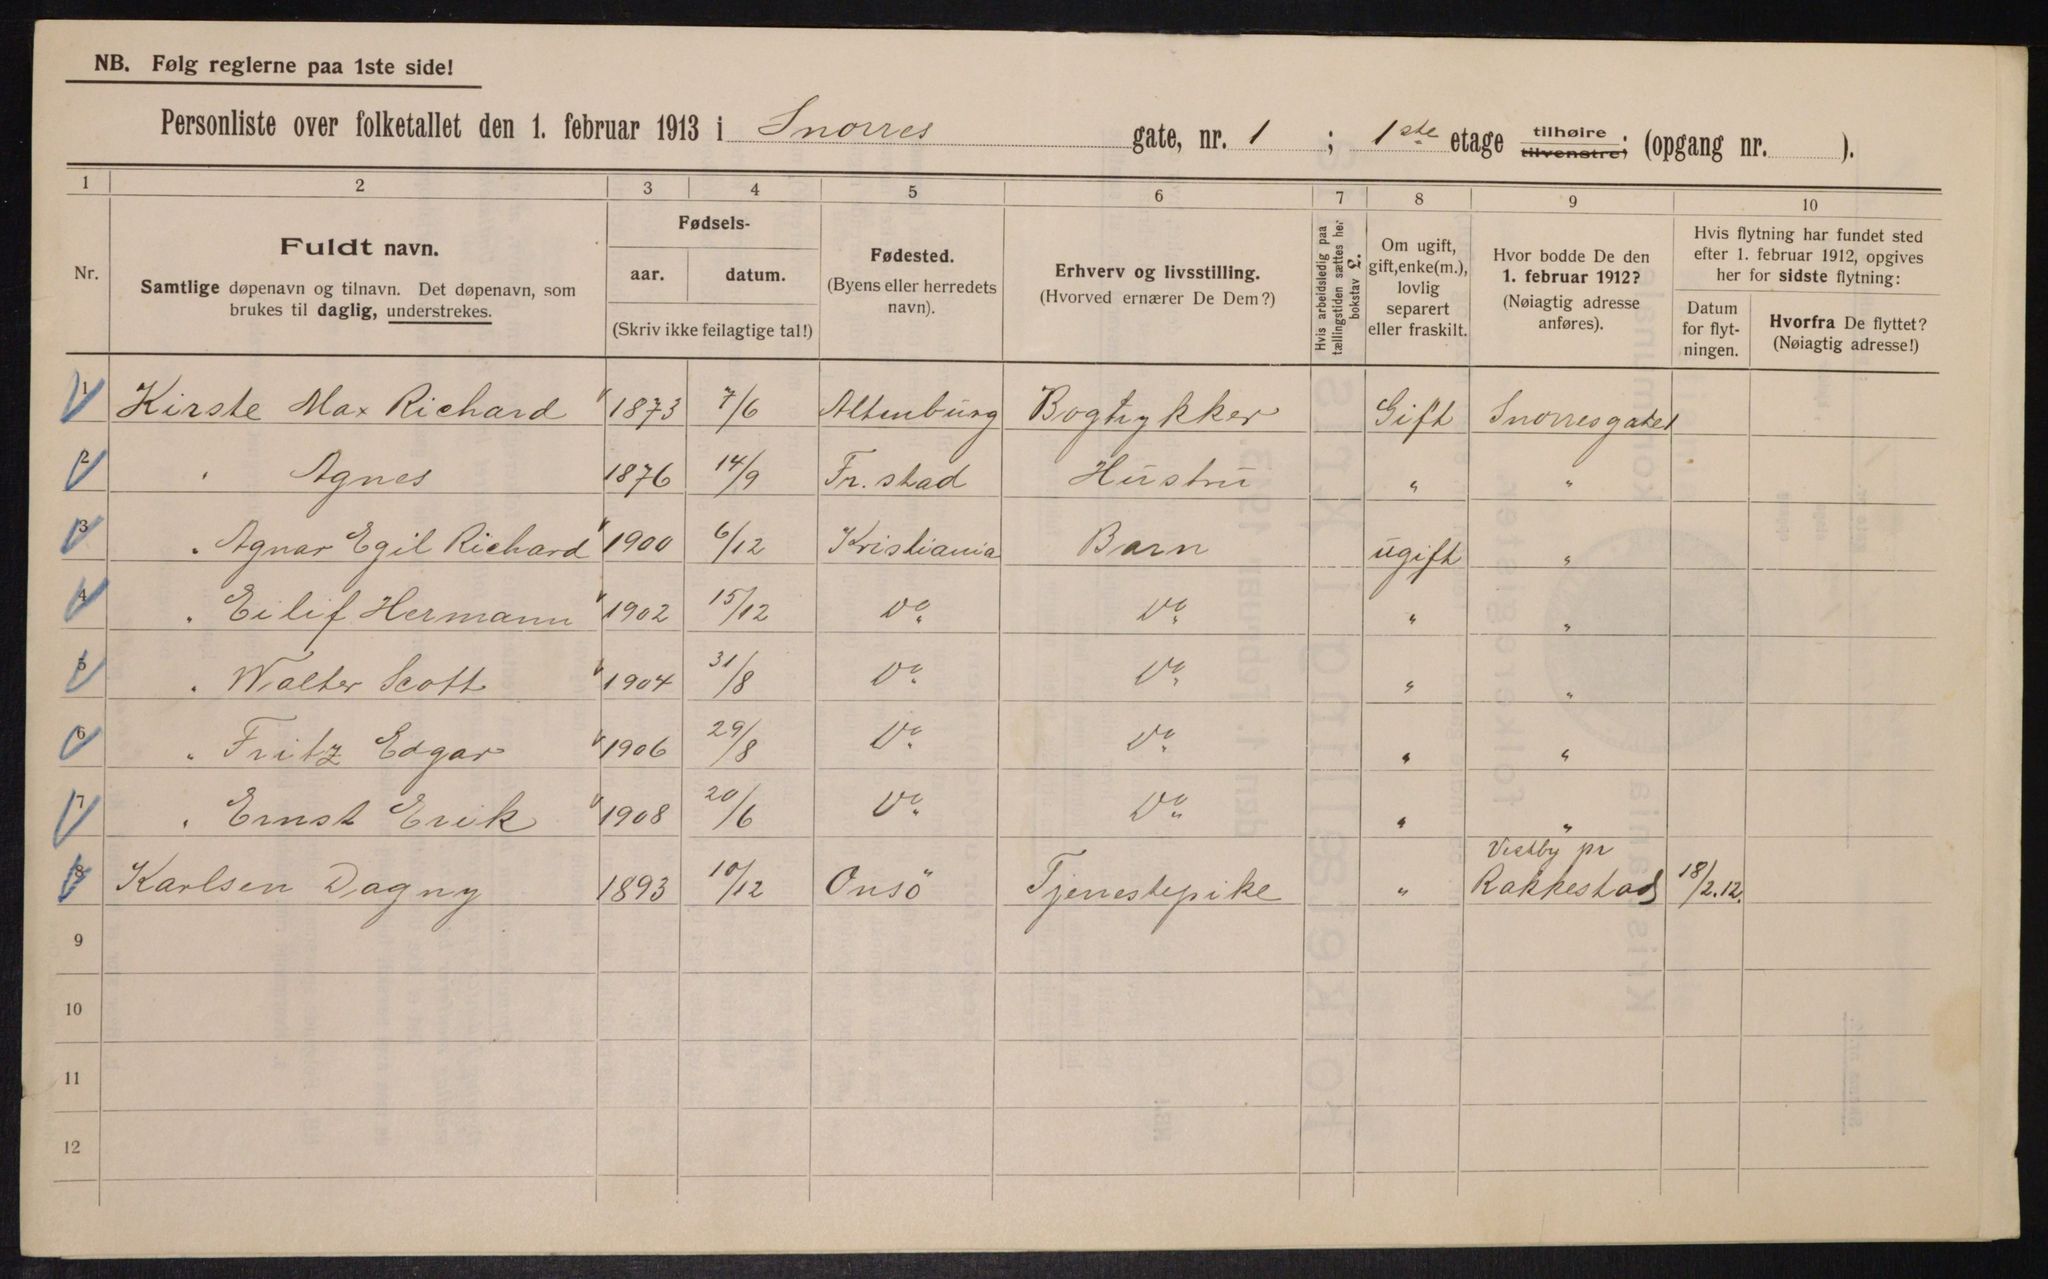 NB. Følg reglerne paa 1ste side!
Personliste over folketallet den 1. februar 1913 i Snorres gate, nr. 1 ; 1ste etage tilhøire tilvenstre; (opgang nr. ).
1 2 3 4 5 6 7 8 9 10
Nr.
Fuldt navn.
Samtlige døpenavn og tilnavn. Det døpenavn, som
brukes til daglig, understrekes.
Fødsels-
aar. datum.
(Skriv ikke feilagtige tal!)
Fødested.
(Byens eller herredets
navn).
Erhverv og livsstilling.
(Hvorved ernærer De Dem?)
Hvis arbeidsledig paa
tællingstiden sættes her
bokstav L.
Om ugift,
gift, enke(m.),
lovlig
separert
eller fraskilt.
Hvor bodde De den
1. februar 1912?
(Nøiagtig adresse
anføres).
Hvis flytning har fundet sted
efter 1. februar 1912, opgives
her for sidste flytning:
Datum
for flyt-
ningen.
Hvorfra De flyttet?
(Nøiagtig adresse!)
1 Kirste Max Richard 1873 7/6 Altenburg Bogtrykker Gift Snorresgate 1
2 " Agnes 1876 14/9 Fr. stad Hustru " "
3 " Agnar Egil Richard 1900 6/12 Kristiania Barn ugift "
4 " Eilif Hermann 1902 15/12 Do Do " "
5 " Walter Scott 1904 31/8 Do Do " "
6 " Fritz Edgar 1906 29/8 Do Do " "
7 " Ernst Erik 1908 20/6 Do Do " "
Vestby pr
8 Karlsen Dagny 1893 10/12 Onsö Tjenestepike " Rakkestad 18/2.12.
9
10
11
12